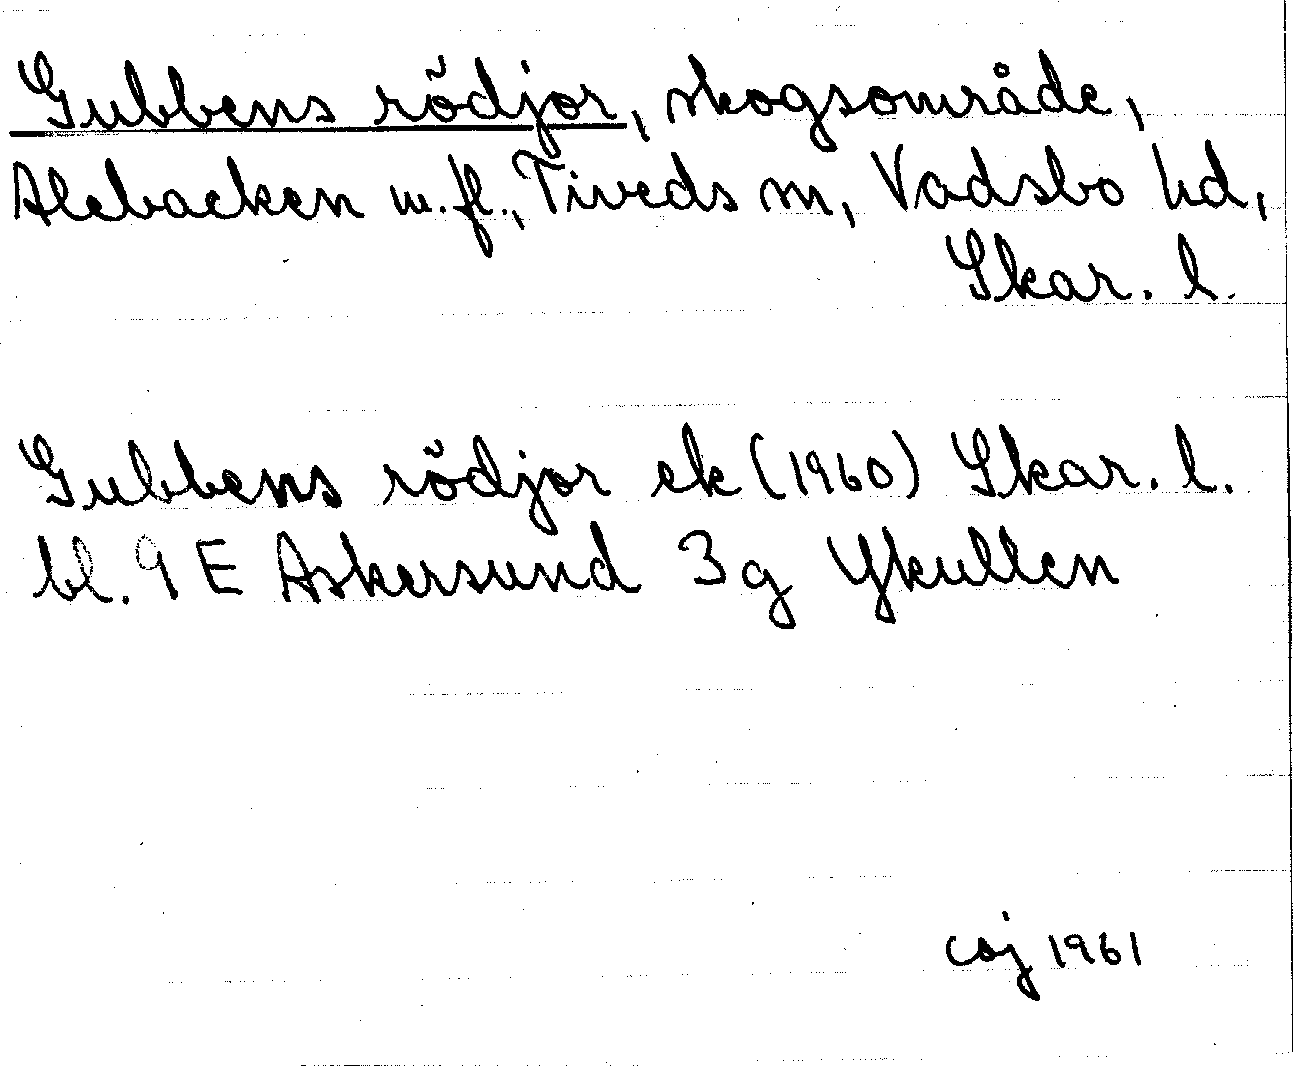 Gubbens rödjor, skogsområde,
Alebacken m.fl., Tiveds sn, Vadsbo hd,
Skar. l.
Gubbens rödjor ek (1960) Skar. l.
bl. 9 E Askersund 3g Ykullen
csj 1961